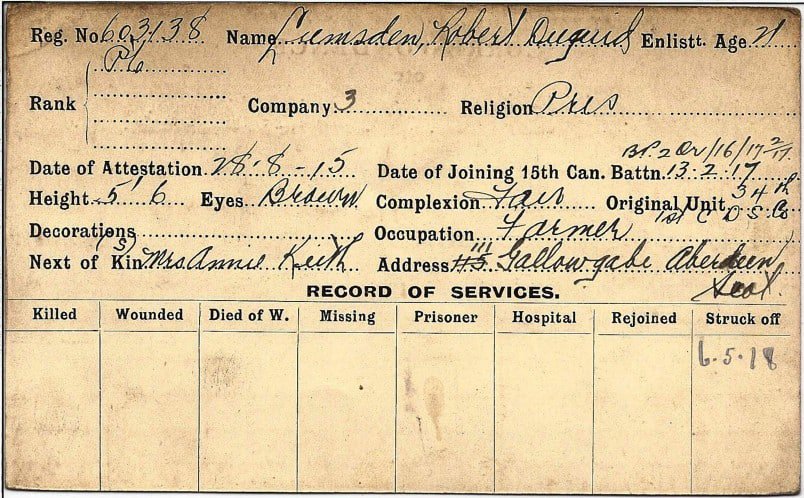 Reg. No 603138 Name Lumsden, Robert Duguid Enlistt. Age 21
Pte
Rank Company 3 Religion Pres
B.P. 2 Or/16/17 2/17
Date of Attestation 28-8-15 Date of Joining 15th Can. Battn. 13-2-17
Height 5'6 Eyes Brown Complexion Fair Original Unit 34th
1st C D S. Co
Decorations Occupation Farmer
(S)
Next of Kin Mrs Annie Keith Address 115 111 Gallowgabe Aberdeen
Scot.
RECORD OF SERVICES.
Killed Wounded Died of W. Missing Prisoner Hospital Rejoined Struck off
6.5.18